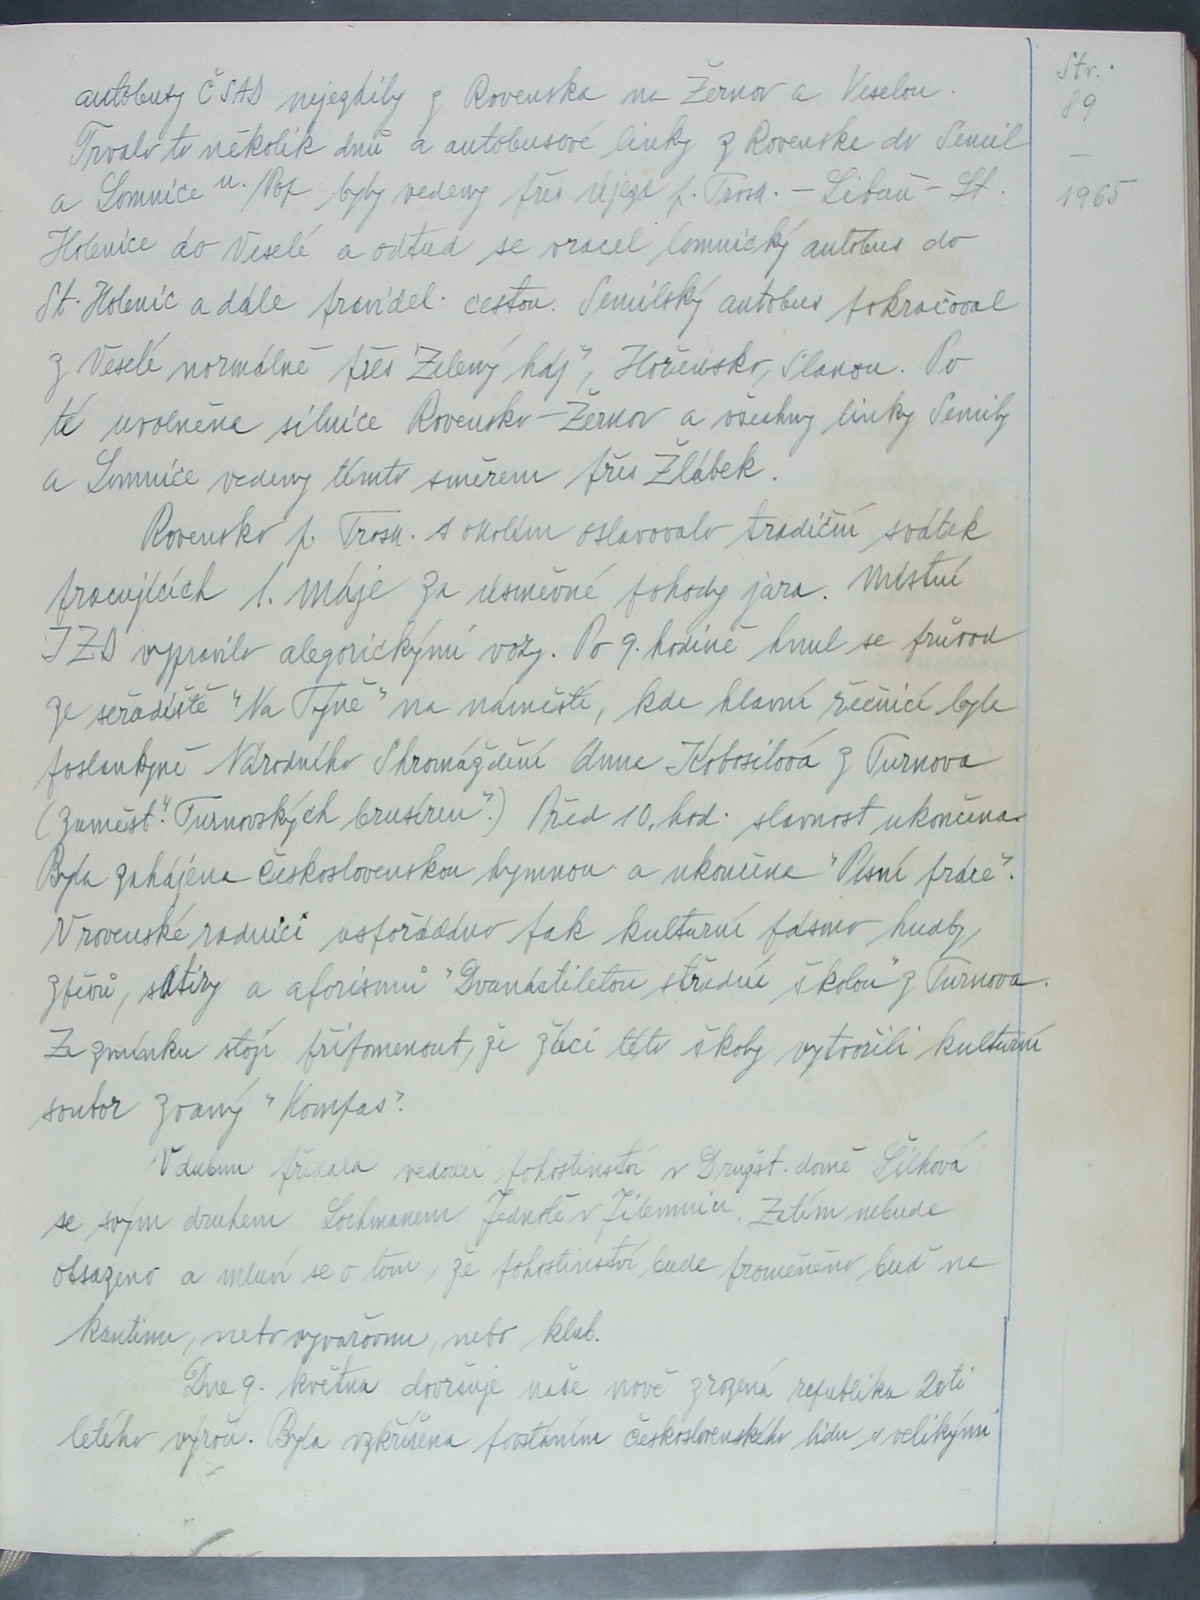 Str.
89
–
1965
autobusy ČSAD nejezdily z Rovenska na Žernov a Veselou.
Trvalo to několik dnů a autobusové linky z Rovenska do Semil
a Lomnice n. Pop byly vedeny přes Újezd p. Trosk. – Libuň – St.
Holenice do Veselé a odtud se vracel lomnický autobus do
St. Holenic a dále pravidel. cestou. Semilský autobus pokračoval
z Veselé normálně přes "Zelený háj", Hořensko, Slanou. Po
té uvolněna silnice Rovensko – Žernov a všechny linky Semily
a Lomnice vedeny tímto směrem přes Žlábek.
Rovensko p. Trosk. s okolím oslavovalo tradiční svátek
pracujících 1. máje za úsměvné pohody jara. Místní
JZD vypravilo alegorickými vozy. Po 9. hodině hnul se průvod
ze seřadiště "Na Týně" na náměstí, kde hlavní řečnicí byla
poslankyně Národního Shromáždění Anna Kobosilová z Turnova
(zaměst. "Turnovských brusíren".) Před 10. hod. slavnost ukončena.
Byla zahájena československou hymnou a ukončena "Písní práce".
V rovenské radnici uspořádáno pak kulturní pásmo hudby,
zpěvů, satiry a aforismů "Dvanáctiletou střední školou" z Turnova.
Za zmínku stojí připomenout, že žáci této školy vytvořili kulturní
soubor zvaný "Kompas".
V dubnu předala vedoucí pohostinství v Družst. domě Šilková
se svým druhem Lochmanem Jednotě v Jilemnici. Zatím nebude
obsazeno a mluví se o tom, že pohostinství bude proměněno buď na
kantinu, nebo vyvařovnu, nebo klub.
Dne 9. května dovršuje naše nově zrozená republika 20ti
letého výročí. Byla vzkříšena povstáním československého lidu s velikými